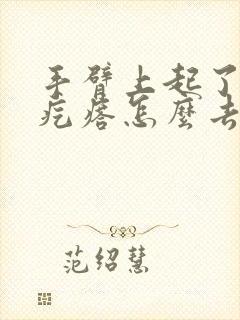 手臂上起了
疙瘩怎麼去
范绍慧